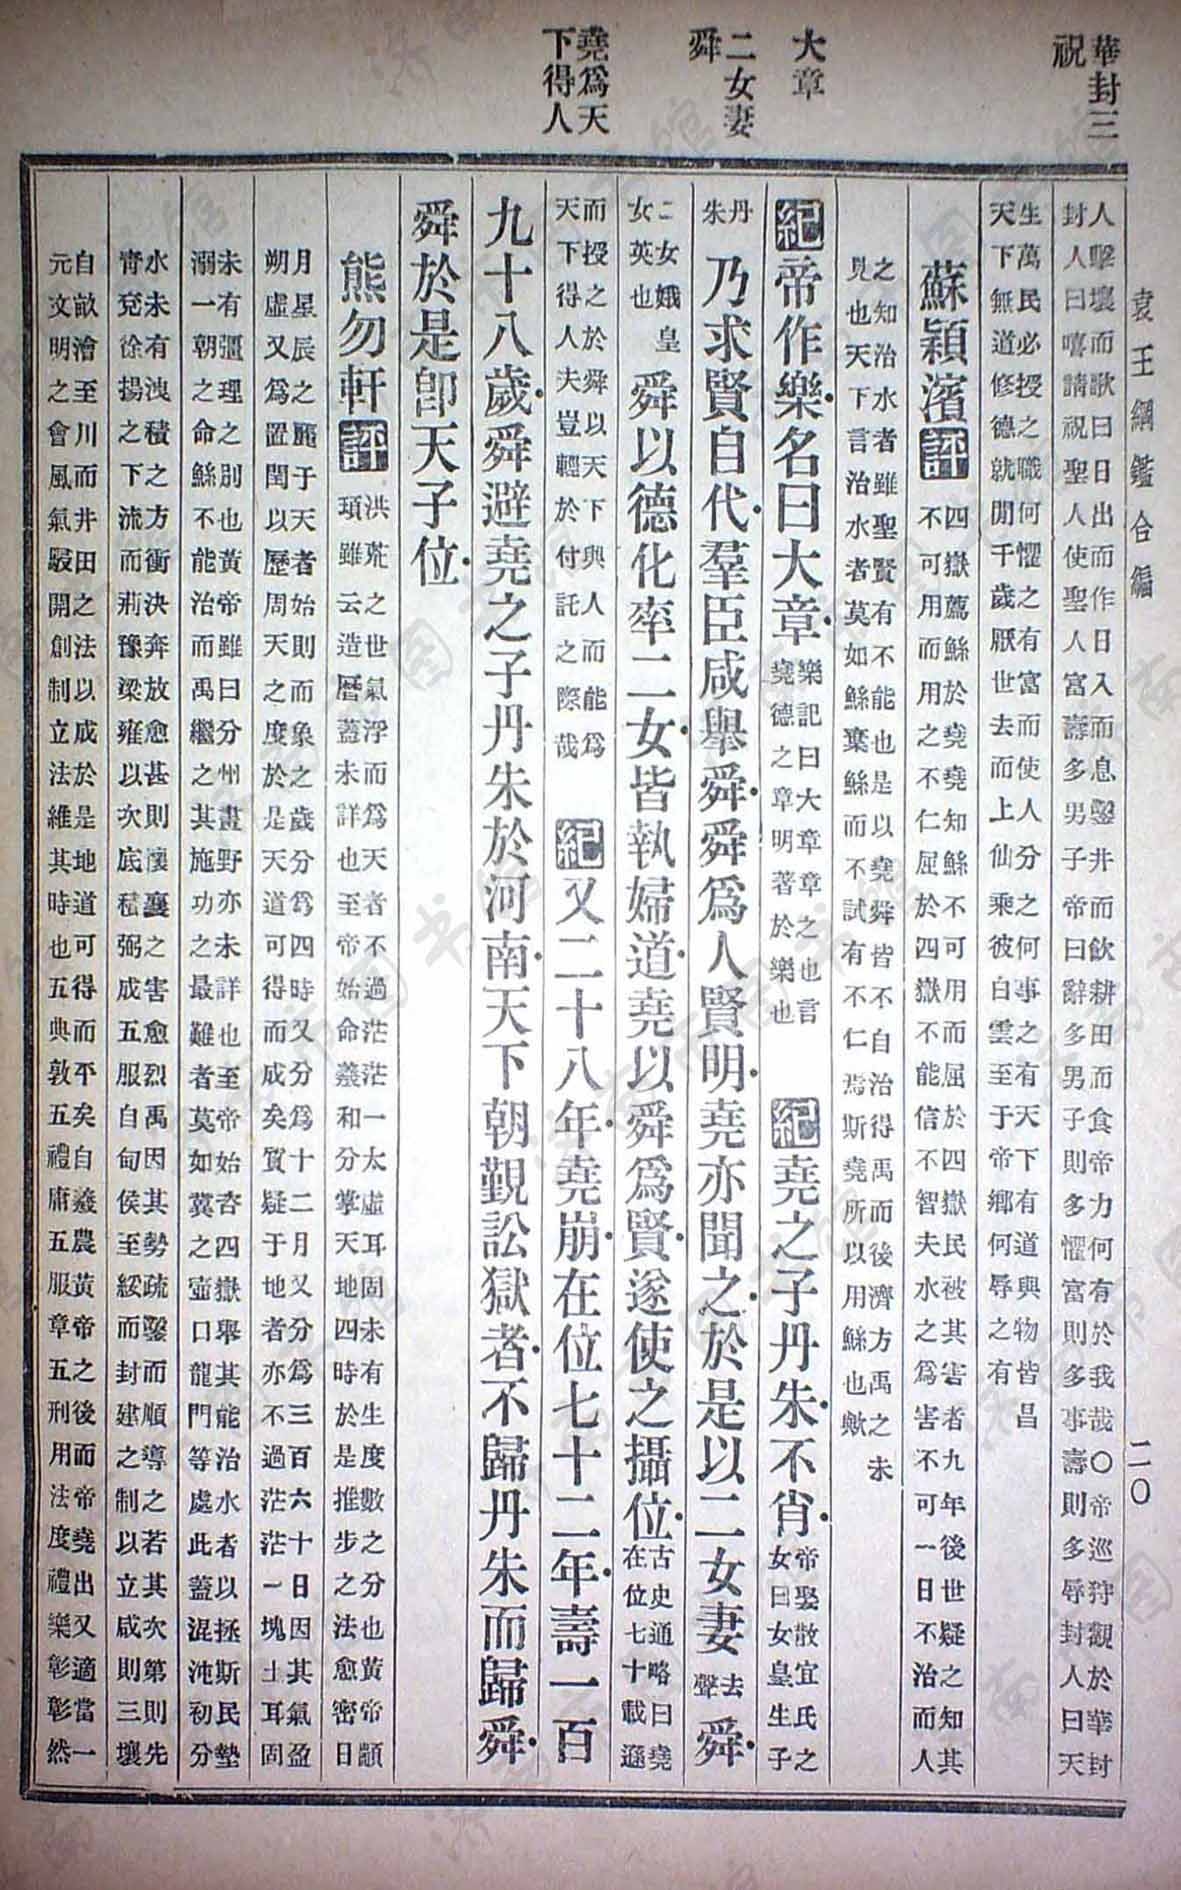 華封三
祝
大章
二女妻
舜
堯爲天
下得人
袁王綱鑑合編
二〇
人擊壤而歌曰日出而作日入而息鑿井而飲耕田而食帝力何有於我哉〇帝巡狩觀於華封
封人曰嘻請祝聖人使聖人富壽多男子帝曰辭多男子則多懼富則多事壽則多辱封人曰天
生萬民必授之職何懼之有富而使人分之何事之有天下有道與物皆昌
天下無道修德就閒千歲厭世去而上仙乘彼白雲至于帝鄉何辱之有
蘇穎濱評
四嶽薦鯀於堯堯知鯀不可用而屈於四嶽民被其害者九年後世疑之知其
不可用而用之不仁屈於四嶽不能信不智夫水之爲害不可一日不治而人
之知治水者雖聖賢有不能也是以堯舜皆不自治得禹而後濟方禹之未
見也天下言治水者莫如鯀棄鯀而不試有不仁焉斯堯所以用鯀也歟
紀帝作樂名曰大章
樂記曰大章章之也言
堯德之章明著於樂也
紀堯之子丹朱不肖
帝娶散宜氏之
女曰女皇生子
丹
朱
乃求賢自代羣臣咸舉舜舜爲人賢明堯亦聞之於是以二女妻
去
聲
舜
二女娥皇
女英也
舜以德化率二女皆執婦道堯以舜爲賢遂使之攝位
古史通略曰堯
在位七十載遜
而授之於舜以天下與人而能爲
天下得人夫豈輕於付託之際哉
紀又二十八年堯崩在位七十二年壽一百
九十八歲舜避堯之子丹朱於河南天下朝覲訟獄者不歸丹朱而歸舜
舜於是卽天子位
熊勿軒評
洪荒之世氣浮而爲天者不過茫茫一太虛耳固未有生度數之分也黃帝顓
頊雖云造曆蓋未詳也至帝始命羲和分掌天地四時於是推步之法愈密日
月星辰之麗于天者始則而象之歲分爲四時又分爲十二月又分爲三百六十日因其氣盈
朔虛又爲置閏以歷周天之度於是天道可得而成矣質疑于地者亦不過茫茫一塊土耳固
未有疆理之別也黃帝雖曰分州畫野亦未詳也至帝始咨四嶽舉其能治水者以拯斯民墊
溺一朝之命鯀不能治而禹繼之其施功之最難者莫如冀之壺口龍門等處此蓋混沌初分
水未有洩積之方衝決奔放愈甚則懷襄之害愈烈禹因其勢疏鑿而順導之若其次第則先
青兗徐揚之下流而荊豫梁雍以次底績弼成五服自甸侯至綏而封建之制以立咸則三壤
自畝澮至川而井田之法以成於是地道可得而平矣自羲農黃帝之後而帝堯出又適當一
元文明之會風氣䦨開創制立法維其時也五典敦五禮庸五服章五刑用法度禮樂彰彰然